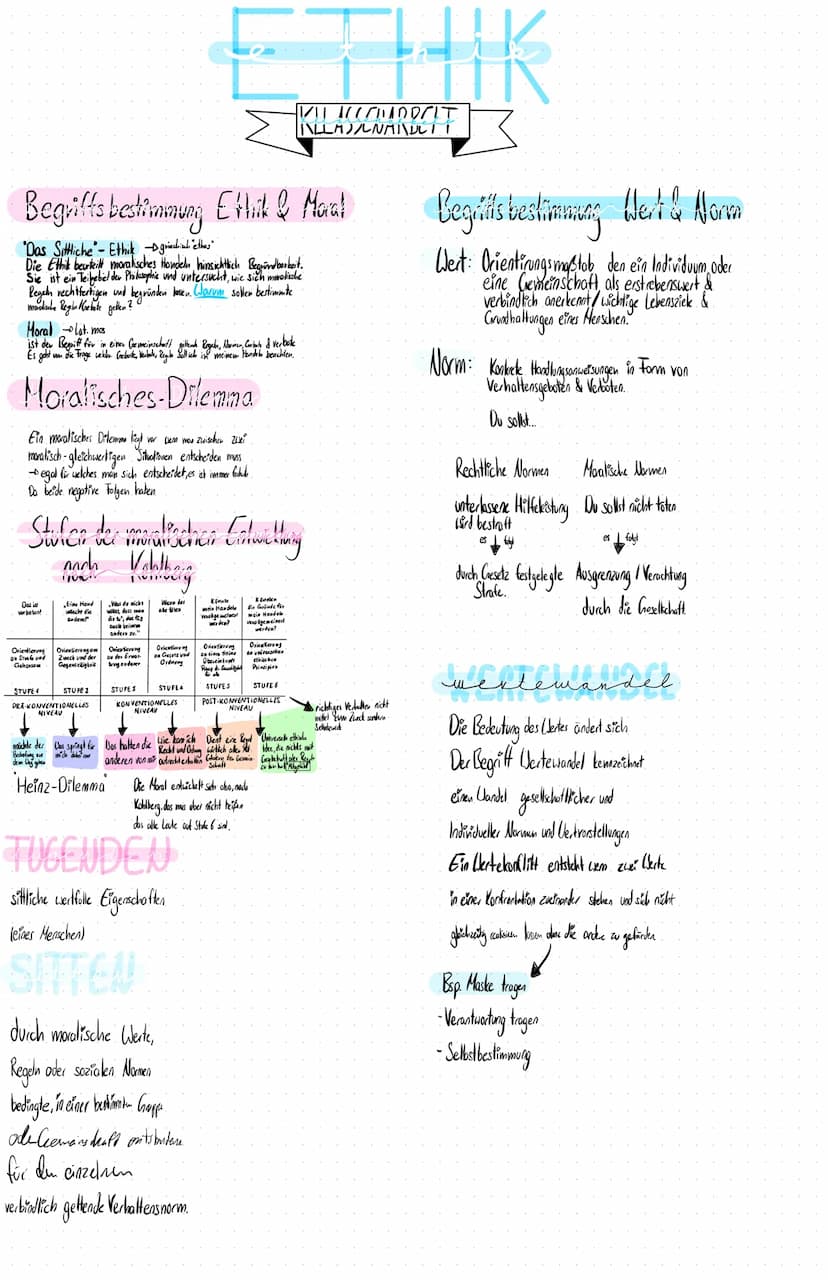 ETHIK
ethik
KLLASSENARBEIT
Begriffsbestimmung Ethik & Moral
"Das Sittliche" - Ethik → griechisch "ethos"
Die Ethik beurteilt moralisches Handeln hinsichtlich Begründbarkeit.
Sie ist ein Teilgebiet der Philosophie und untersucht, wie sich moralische
Regeln rechtfertigen und begründen lassen. Warum sollten bestimmte
moralische Regeln/Gebote gelten?
Moral → Lat. mos
ist der Begriff für in einer Gemeinschaft geltende Regeln, Normen, Gebote & Verbote
Es geht um die Frage welche Gebote, Verbote, Regeln sollte ich in meinem Handeln beachten.
Moralisches-Dilemma
Ein moralisches Dilemma liegt vor wenn man zwischen zwei
moralisch-gleichwertigen Situationen entscheiden muss
→ egal für welches man sich entscheidet, es ist immer falsch
Da beide negative Folgen haben
Stufen der moralischen Entwicklung
nach Kohlberg
Das ist verboten!
"Eine Hand wäscht die andere!"
"Was du nicht willst, dass man dir tu', das füg auch keinem andern zu."
Wenn das alle täten
Könnte mein Handeln verallgemeinert werden?
Könnten die Gründe für mein Handeln verallgemeinert werden?
Orientierung an Strafe und Gehorsam
Orientierung am Zweck und der Gegenseitigkeit
Orientierung an der Erwartung anderer
Orientierung an Gesetz und Ordnung
Orientierung an universalen ethischen Prinzipien
STUFE 1
STUFE 2
STUFE 3
STUFE 4
STUFE 5
STUFE 6
PRÄ-KONVENTIONELLES NIVEAU
KONVENTIONELLES NIVEAU
POST-KONVENTIONELLES NIVEAU
richtiges Verhalten nicht
mittel zum Zweck sondern
Selbstzweck
Das springt für mich dabei raus
Das halten die anderen von mir
Wie kann ich Recht und Ordnung aufrechterhalten
Dient eine Regel wirklich allen
"Heinz-Dilemma"
Die Moral entwickelt sich also, nach
Kohlberg, das muss aber nicht heißen
das alle Leute auf Stufe 6 sind.
TUGENDEN
sittliche wertfolle Eigenschaften
(eines Menschen)
SITTEN
durch moralische Werte,
Regeln oder sozialen Normen
bedingte, in einer bestimmten Gruppe
oder Gemeinschaft
für den einzelnen
verbindlich geltende Verhaltensnorm.
Begriffsbestimmung Wert & Norm
Wert: Orientirungsmaßtab den ein Individuum oder
eine Gemeinschaft als erstrebenswert &
verbindlich anerkennt / wichtige Lebensziele &
Grundhaltungen eines Menschen.
Norm: Konkrete Handlungsanweisungen in Form von
Verhaltensgeboten & Verboten.
Du sollst...
Rechtliche Normen
unterlassene Hilfeleistung
wird bestraft
es ↓ folgt
durch Gesetz festgelegte
Strafe.
Moralische Normen
Du sollst nicht töten
es ↓ folgt
Ausgrenzung / Verachtung
durch die Gesellschaft
WERTEWANDEL
wertewandel
Die Bedeutung des Wertes ändert sich
Der Begriff Wertewandel kennzeichnet
einen Wandel gesellschaftlicher und
Individueller Normen und Wertvorstellungen
Ein Wertekonflikt entsteht wenn zwei Werte
in einer Konfrontation zueinander stehen und sich nicht
gleichzeitig realisieren lassen ohne die andre zu gefärden
Bsp. Maske tragen
- Verantwortung tragen
- Selbstbestimmung